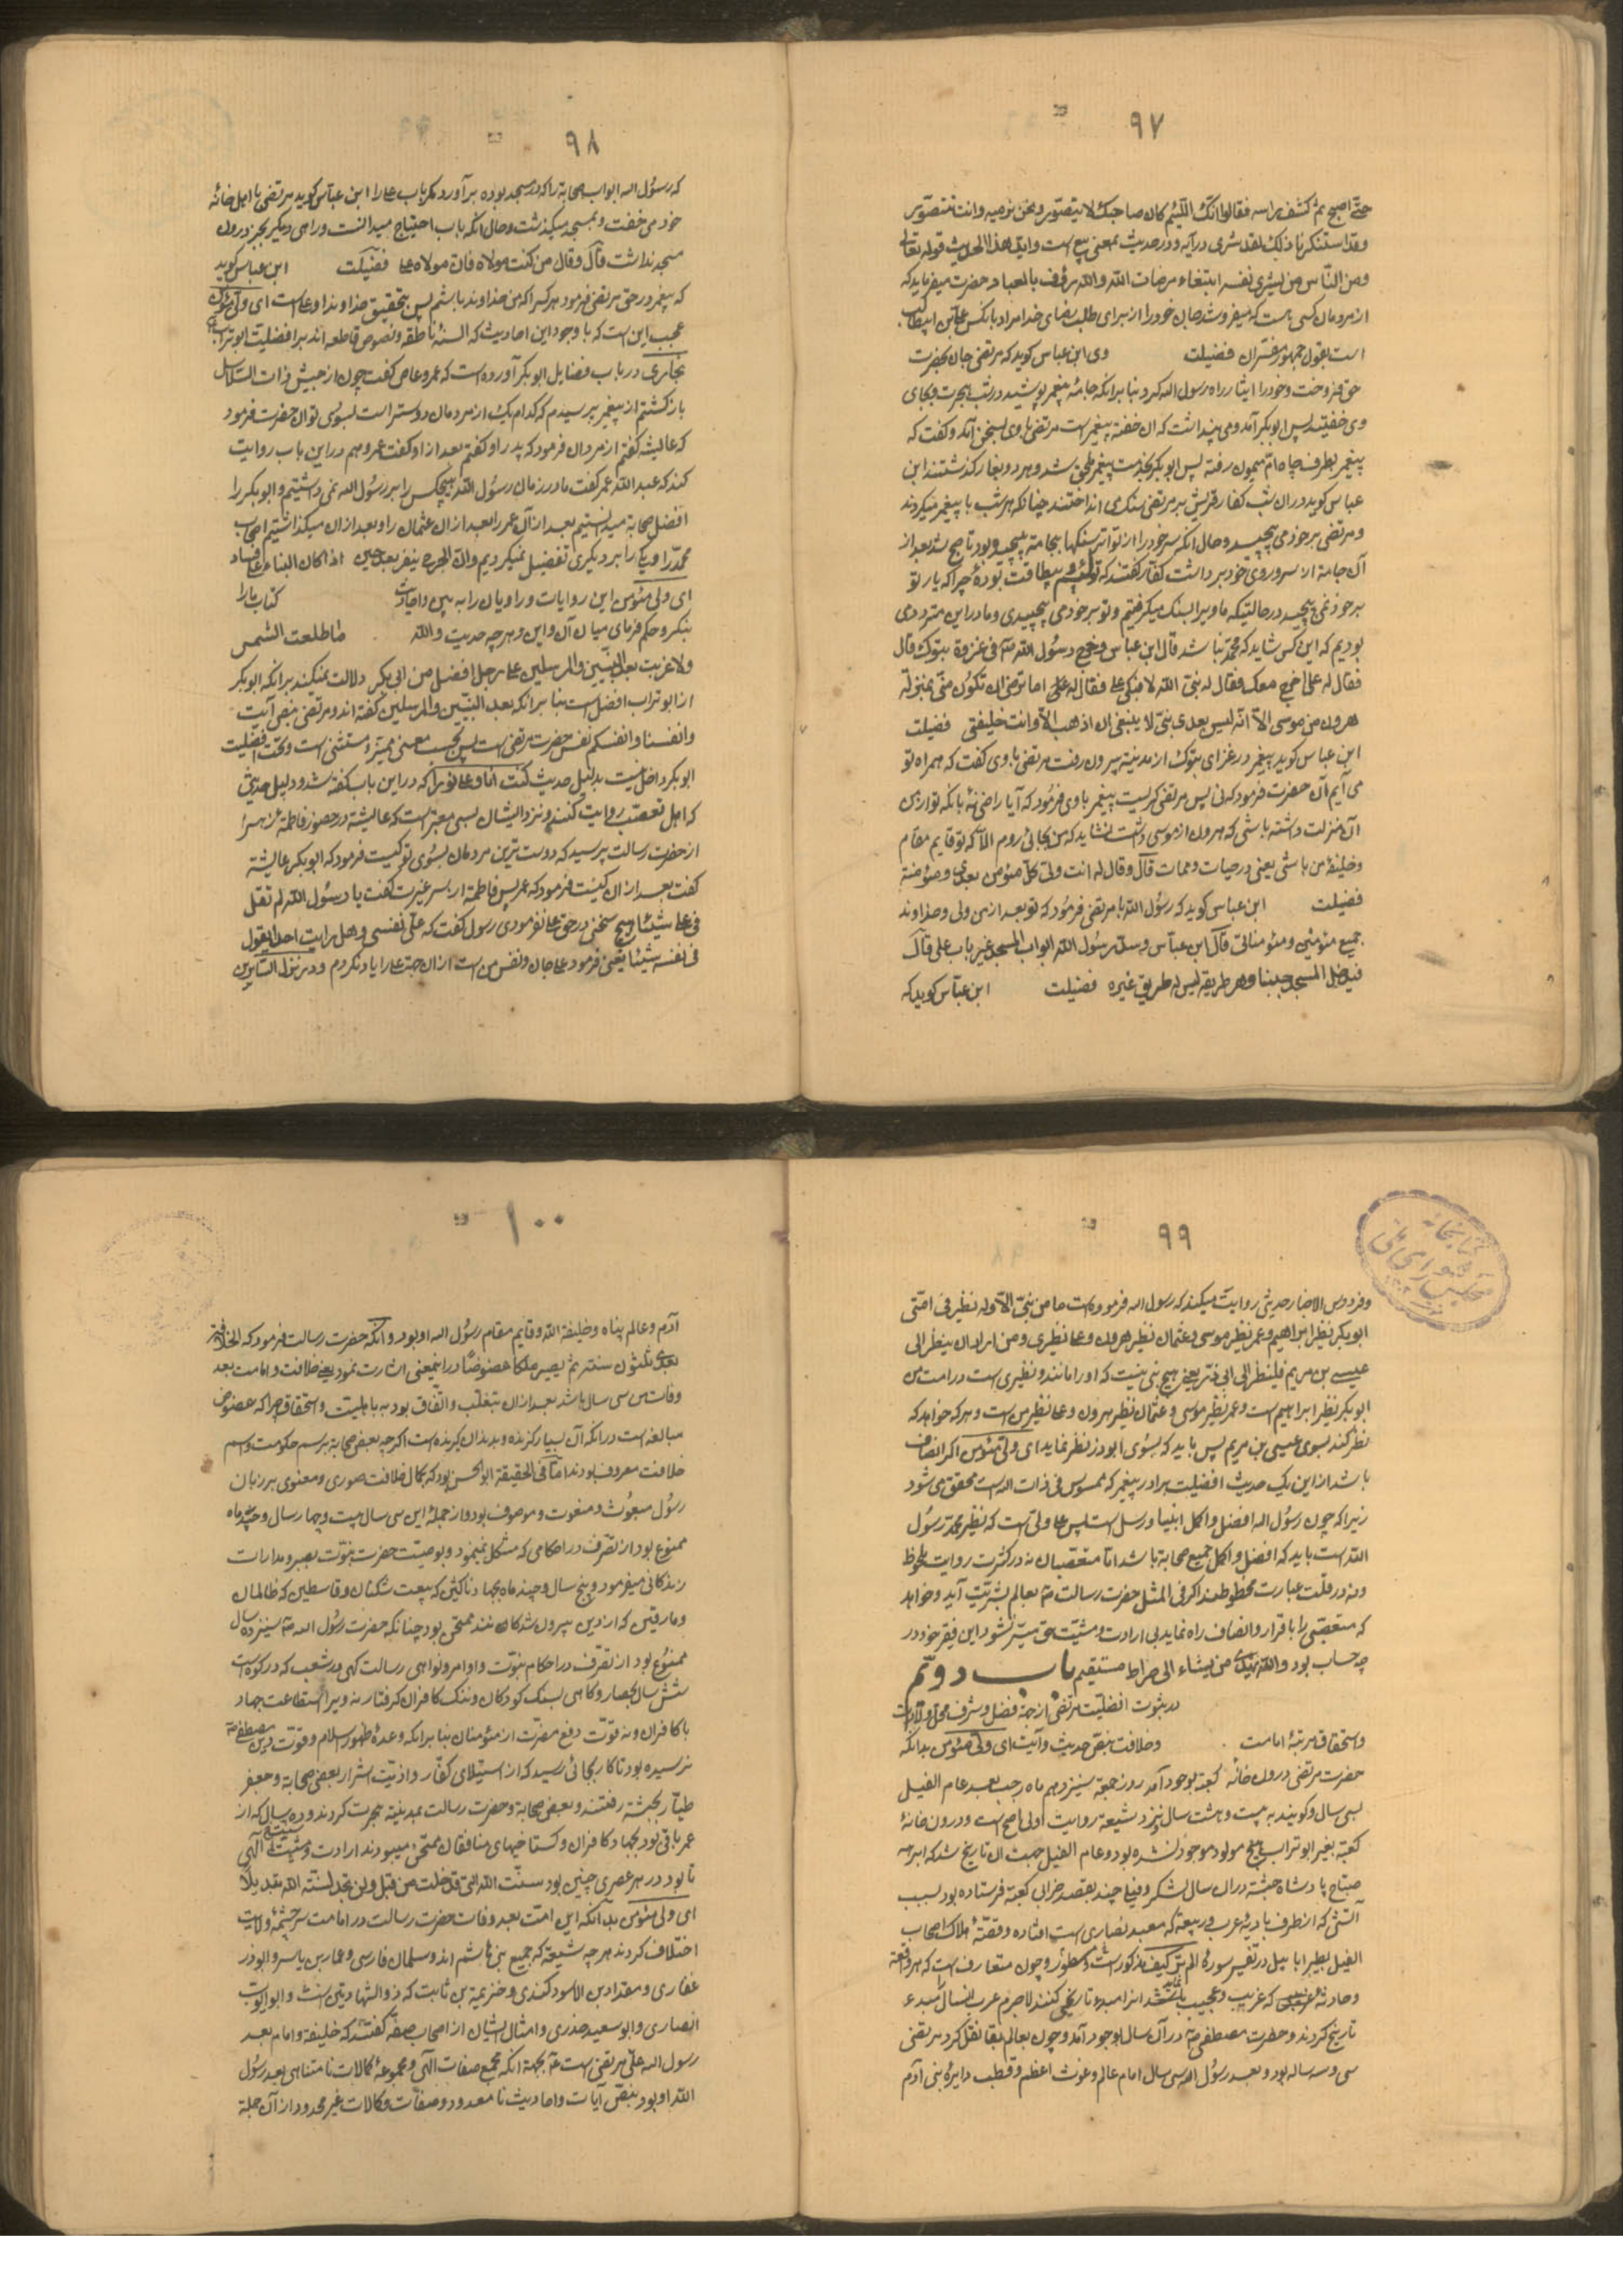 ٩٧
حتّی اصبح ثم کشف راسه فقالوا انک اللئیم کان صاحبک لا یتضوّر و نحن نرمیه و انت تتضوّر
و قد استنکرنا ذلک لقد شری در آیه و در حدیث بمعنی بیع است و اید هذا الحدیث قوله تعالی
و من النّاس من یشری نفسه ابتغاء مرضات الله و الله رؤف بالعباد حضرت میفرماید که
از مردمان کسی هست که میفروشد جان خود را از برای طلب رضای خدا مراد باینکس علی بن ابیطالب
است بقول جمهور مفسّران فضیلت وی ابن عباس کوید که مرتضی جان بحضرت
حق فروخت و خود را ایثار راه رسول الله کرد بنا برانکه جامهٔ پیغمبر پوشید در شب هجرت و بجای
وی خفیتد پس ابوبکر آمد و می پنداشت که ان خفته پیغمبر است مرتضی با وی بسخن آمد و کفت که
پیغمبر بطرف چاه ام میمون رفته پس ابوبکر بخدمت پیغمبر ملحق شد و هر دو بغار کذشتند ابن
عباس کوید در ان شب کفار قریش بر مرتضی سنک می انداختند چنانکه هر شب با پیغمبر میکردند
و مرتضی بر خود می پیچید و حال انکه سر خود را از تواتر سنکها بجامه پیچیده بود تا صبح شد بعد از
آن جامه از سر و روی خود برداشت کفار کفتند که تو لئیم و بیطاقت بودهٔ چرا که یار تو
بر خود نمی پیچید در حالتیکه ما ویرا بسنک میکرفتیم و تو بر خود می پیچیدی و ما در این متردد
بودیم که این کس شاید که محمّد نباشد قال ابن عباس و خرج رسول الله صلی فی غزوة تبوک قال
فقال له علی اخرج معک فقال له نبیّ الله لا فبکی علی فقال له علی اما ترضی ان تکون منّی بمنزلة
هرون من موسی الاّ انّه لیس بعدی نبیّ لا ینبغی ان اذهب الاّ و انت خلیفتی فضیلت
ابن عباس کوید پیغمبر در غزای تبوک از مدینه بیرون رفت مرتضی با وی کفت که همراه تو
می آیم آن حضرت فرمود که نی پس مرتضی کریست پیغمبر با وی فرمود که آیا راضی نهٔ بانکه تو از من
آن منزلت داشته باشی که هرون از موسی داشت نشاید که من بجائی روم الاّ که تو قایم مقام
و خلیفهٔ من باشی یعنی در حیات و ممات قال و قال له انت ولیّ کلّ مؤمن بعدی و مؤمنة
فضیلت ابن عباس کوید که رسول الله با مرتضی فرمود که تو بعد از من ولی و خداوند
جمیع مؤمنین و مؤمناتی قال ابن عبّاس و سدّ رسول الله ابواب المسجد غیر باب علی قال
فیدخل المسجد جنبا و هو طریقه لیس له طریق غیره فضیلت ابن عبّاس کوید که
٩٨
که رسول الله ابواب صحابة را که در مسجد بوده بر آورد مکر باب علی را ابن عبّاس کوید مرتضی با اهل خانهٔ
خود می خفت و بمسجد میکذشت و حال انکه باب احتیاج میدانست و راهی دیکر بجز درون
مسجد نداشت قال و قال من کنت مولاه فان مولاه علی فضیلت ابن عباس کوید
که پیغمبر در حق مرتضی فرمود هر کس را که من خداوند باشم پس بتحقیق خداوند او علی است ای ولی مؤمن
عجب این است که با وجود این احادیث که السنهٔ ناطقه و نصوص قاطعه اند بر افضلیت ابوتراب
بخاری در باب فضایل ابوبکر آورده است که عمرو عاص کفت چون از جیش ذات السلاسل
باز کشتم از پیغمبر پرسیدم که کدام یک از مردمان دوستر است بسوی تو ان حضرت فرمود
که عایشه کفتم از مردان فرمود که پدر او کفتم بعد از او کفت عمر و هم در این باب روایت
کند که عبد الله عمر کفت ما در زمان رسول الله هیچکس را بر رسول الله نمی داشتیم و ابوبکر را
افضل صحابة میدانستیم بعد از آن عمر را بعد از ان عثمان را و بعد از ان میکذاشتیم اصحاب
محمّد را و یکی را بر دیکری تفضیل نمیکردیم و انّ الجرح ینفر بعد حین اذا کان البناء علی فساد
ای ولی مؤمن این روایات و راویان را به بین و احادیث کتاب ما را
بنکر و حکم فرمای میان آن و این و هر چه حدیث و الله ما طلعت الشمس
و لا غربت بعد النبیّین و المرسلین علی رجل افضل من ابی بکر دلالت نمیکند برانکه ابوبکر
از ابوتراب افضل است بنا برانکه بعد النبیّین و المرسلین کفته اند و مرتضی بنص آیت
و انفسنا و انفسکم نفس حضرت مرتضی است پس بحسب معنی ممیّز و مستثنی است و تحت افضلیت
ابوبکر داخل نیست بدلیل حدیث کنت انا و علی نورا که در این باب کفته شد و دلیل حدیثی
که اهل تعصّب روایت کنند و نزد ایشان بسی معتبر است که عایشه در حضور فاطمه زهرا
از حضرت رسالت پرسید که دوست ترین مردمان بسوی تو کیست فرمود که ابوبکر عایشة
کفت بعد از ان کیست فرمود که عمر پس فاطمه از سر غیرت کفت یا رسول الله لم تقل
فی علی شیئا هیچ سخنی در حق علی نفرمودی رسول کفت که علیّ نفسی و هل رایت احدا یقول
فی نفسه شیئا یعنی فرمود علی جان و نفس من است از ان جهة علی را یاد نکردم و در نزل السّایرین
٩٩
و فردوس الاخبار حدیثی روایت میکند که رسول الله فرموده است ما من نبیّ الاّ و له نظیر فی امّتی
ابوبکر نظیر ابراهیم و عمر نظیر موسی و عثمان نظیر هرون و علی نظیری و من اراد ان ینظر الی
عیسی بن مریم فلینظر الی ابی ذر یعنی هیچ نبی نیست که او را مانند و نظیری است در امت من
ابوبکر نظیر ابراهیم است و عمر نظیر موسی و عثمان نظیر هرون و علی نظیر من است و هر که خواهد که
نظر کند بسوی عیسی بن مریم پس باید که بسوی ابوذر نظر نماید ای ولی مؤمن اکر انصاف
باشد از این یک حدیث افضلیت برادر پیغمبر که ممسوس فی ذات الله است محقق می شود
زیرا که چون رسول الله افضل و اکمل انبیا و رسل است پس علی ولی است که نظیر محمد رسول
الله است باید که افضل و اکمل جمیع صحابة باشد امّا متعصّبان نه در کثرت روایت ملحوظ
و نه در قلّت عبارت محظوظند اکر فی المثل حضرت رسالت ص بعالم بشریّت آید و خواهد
که متعصّبی را با قرار و انصاف راه نماید بی ارادت و مشیّت حق میسّر نشود این فقیر خود در
چه حساب بود و الله یهدی من یشاء الی صراط مستقیم باب دوّم
در ثبوت افضلیّت مرتضی از جهة فضل و شرف محل ولادت
و استحقاق مرتبهٔ امامت و خلافت بنصّ حدیث و آیت ای ولی مؤمن بدانکه
حضرت مرتضی درون خانهٔ کعبة بوجود آمد روز جمعة سیزدهم ماه رجب بعد عام الفیل
بسی سال و کویند به بیست و هشت سال و نزد شیعة روایت اولی اصح است و درون خانهٔ
کعبة بغیر ابوتراب هیچ مولود موجود نشده بود و عام الفیل جهت ان تاریخ شد که ابرهه
صبّاح پادشاه حبشه در ان سال لشکر و فیلی چند بقصد خرابی کعبة فرستاده بود بسبب
آتشی که از طرف بادیهٔ عرب در بیعة که معبد نصاری است افتاده و قصّهٔ هلاک اصحاب
الفیل بطیر ابابیل در تفسیر سورهٔ الم تر کیف مذکور است و مسطور و چون متعارف است که هر واقعة
و حادثه که غریب و عجیب باشد انرا مبدء تاریخ کنند لاجرم عرب انسال را مبدء
تاریخ کردند و حضرت مصطفی ص در آن سال بوجود آمد و چون بعالم بقا نقل کرد مرتضی
سی و سه ساله بود و بعد رسول الله سی سال امام عالم و غوث اعظم و قطب دایرهٔ بنی آدم
١٠٠
آدم و عالم پناه و خلیفة الله و قایم مقام رسول الله او بود و آنکه حضرت رسالت فرمود که الخلافة
بعدی ثلثون سنة ثم یصیر ملکا عضوضا در اینمعنی اشارت نمود یعنی خلافت و امامت بعد
وفات من سی سال باشد بعد از ان بتغلّب و اتّفاق بود نه باهلیّت و استحقاق چرا که عضوض
مبالغه است در انکه آن بسیار کزنده و بدندان کرنده است اکر چه بعضی صحابة برسم حکومت و اسم
خلافت معروف بودند امّا فی الحقیقة ابوالحسن بود که بکمال خلافت صوری و معنوی بر زبان
رسول مبعوث و منعوت و موصوف بود و از جملهٔ این سی سال بیست و چهار سال و چند ماه
ممنوع بود از تصرّف در احکامی که مشکل مینمود و بوصیّت حضرت نبوّت بصبر و مدارات
زندکانی میفرمود و پنج سال و چند ماه بجهاد ناکثین که بیعت شکنان و قاسطین که ظالمان
و مارقین که از دین بیرون شدکان شدند ممتحن بود چنانکه حضرت رسول الله ص سیزده سال
ممنوع بود از تصرّف در احکام نبوّت و اوامر و نواهی رسالت کهی در شعب که در کوه است
شش سال بحصار و کاهی بسنک کودکان و ننک کافران کرفتار نه ویرا استطاعت جهاد
با کافران و نه قوّت دفع مضرّت از مؤمنان بنا برانکه وعدهٔ ظهور اسلام و قوّت دین مصطفی
نرسیده بود تا کار بجائی رسید که از استیلای کفّار و اذیّت اشرار بعضی صحابة و جعفر
طیّار بحبشة رفتند و بعضی صحابة و حضرت رسالت بمدینة هجرت کردند و ده سال که از
عمر باقی بود بجهاد کافران و کستاخیهای منافقان ممتحن میبودند ارادت و مشیّت آلهی
تا بود در هر عصری چنین بود سنّت الله الّتی قد خلت من قبل و لن تجد لسنّة الله تبدیلا
ای ولی مؤمن بدانکه این امّت بعد وفات حضرت رسالت در امامت سر چشمهٔ ولایت
اختلاف کردند هر چه شیعة که جمیع بنی هاشم اند و سلمان فارسی و عمار بن یاسر و ابوذر
غفاری و مقداد بن الاسود کندی و خزیمة بن ثابت که ذو الشهادتین است و ابو ایوب
انصاری و ابو سعید خدری و امثال ایشان از اصحاب صفّه کفتند که خلیفة و امام بعد
رسول الله علیّ مرتضی است بجهة انکه مجمع صفات آلهی و مجموعهٔ کمالات نامتناهی بعد رسول
الله او بود بنصّ آیات و احادیث نامعدود و صفات و کمالات غیر محدود از آن جملة